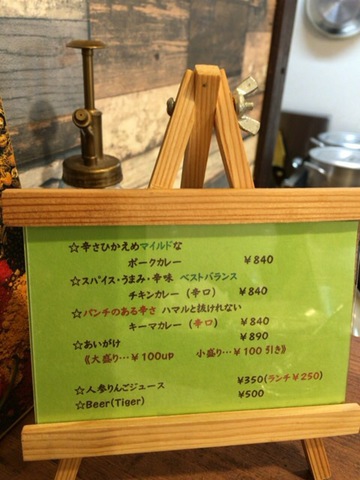 ☆辛さひかえめマイルドな
ポークカレー ￥840
☆スパイス・うまみ・辛味 ベストバランス
チキンカレー（辛口） ￥840
☆パンチのある辛さ ハマルと抜けれない
キーマカレー（辛口） ￥840
☆あいがけ ￥890
《大盛り…￥100up 小盛り…￥100引き》
☆人参りんごジュース ￥350(ランチ￥250)
☆Beer(Tiger) ￥500